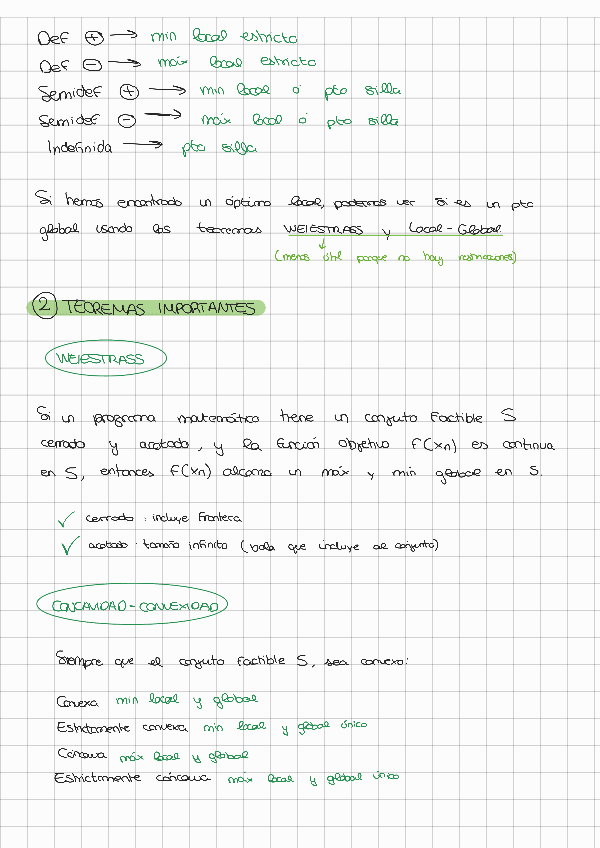 Def ⊕ → min local estricto
Def ⊖ → máx local estricto
Semidef ⊕ → min local ó pto silla
Semidef ⊖ → máx local ó pto silla
Indefinida → pto silla
Si hemos encontrado un óptimo local, podemos ver si es un pto
global usando los teoremas WEIESTRASS y Local-Global
(menos útil porque no hay restricciones)
② TEOREMAS IMPORTANTES
WEIESTRASS
Si un programa matemático tiene un conjuto Factible S
cerrado y acotado, y la función objetivo f(xn) es continua
en S, entonces f(xn) alcanza un máx y min global en S.
✓ cerrado : incluye frontera
✓ acotado · tamaño infinito (bola que incluye al conjunto)
CONCAVIDAD-CONVEXIDAD
Siempre que el conjuto Factible S, sea convexo:
Convexa min local y global
Estrictamente convexa min local y global único
Cóncava máx local y global
Estrictamente cóncava máx local y global único